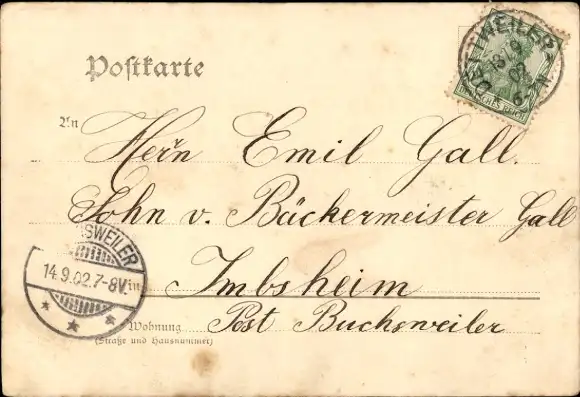 DETTWEILER
13/9
02
DEUTSCHES REICH
Postkarte
An
Herrn Emil Gall.
Sohn v. Bäckermeister Gall
SWEILER
14.9.02.7-8V.
in Imbsheim
Wohnung Post Buchsweiler
(Straße und Hausnummer)